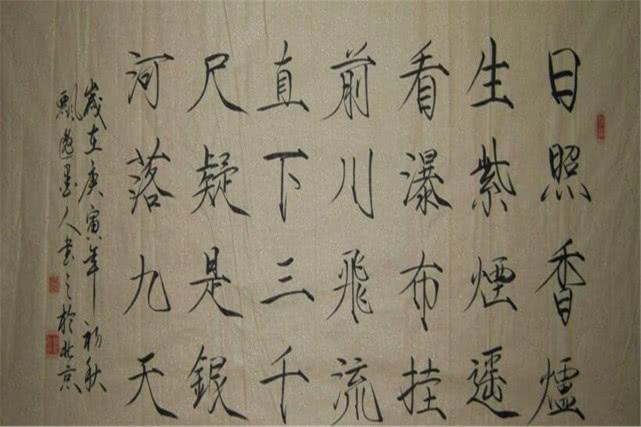 日照香爐
生紫煙遥
看瀑布挂
前川飛流
直下三千
尺疑是銀
河落九天
歲在庚寅年初秋
飄逸墨人書之於北京